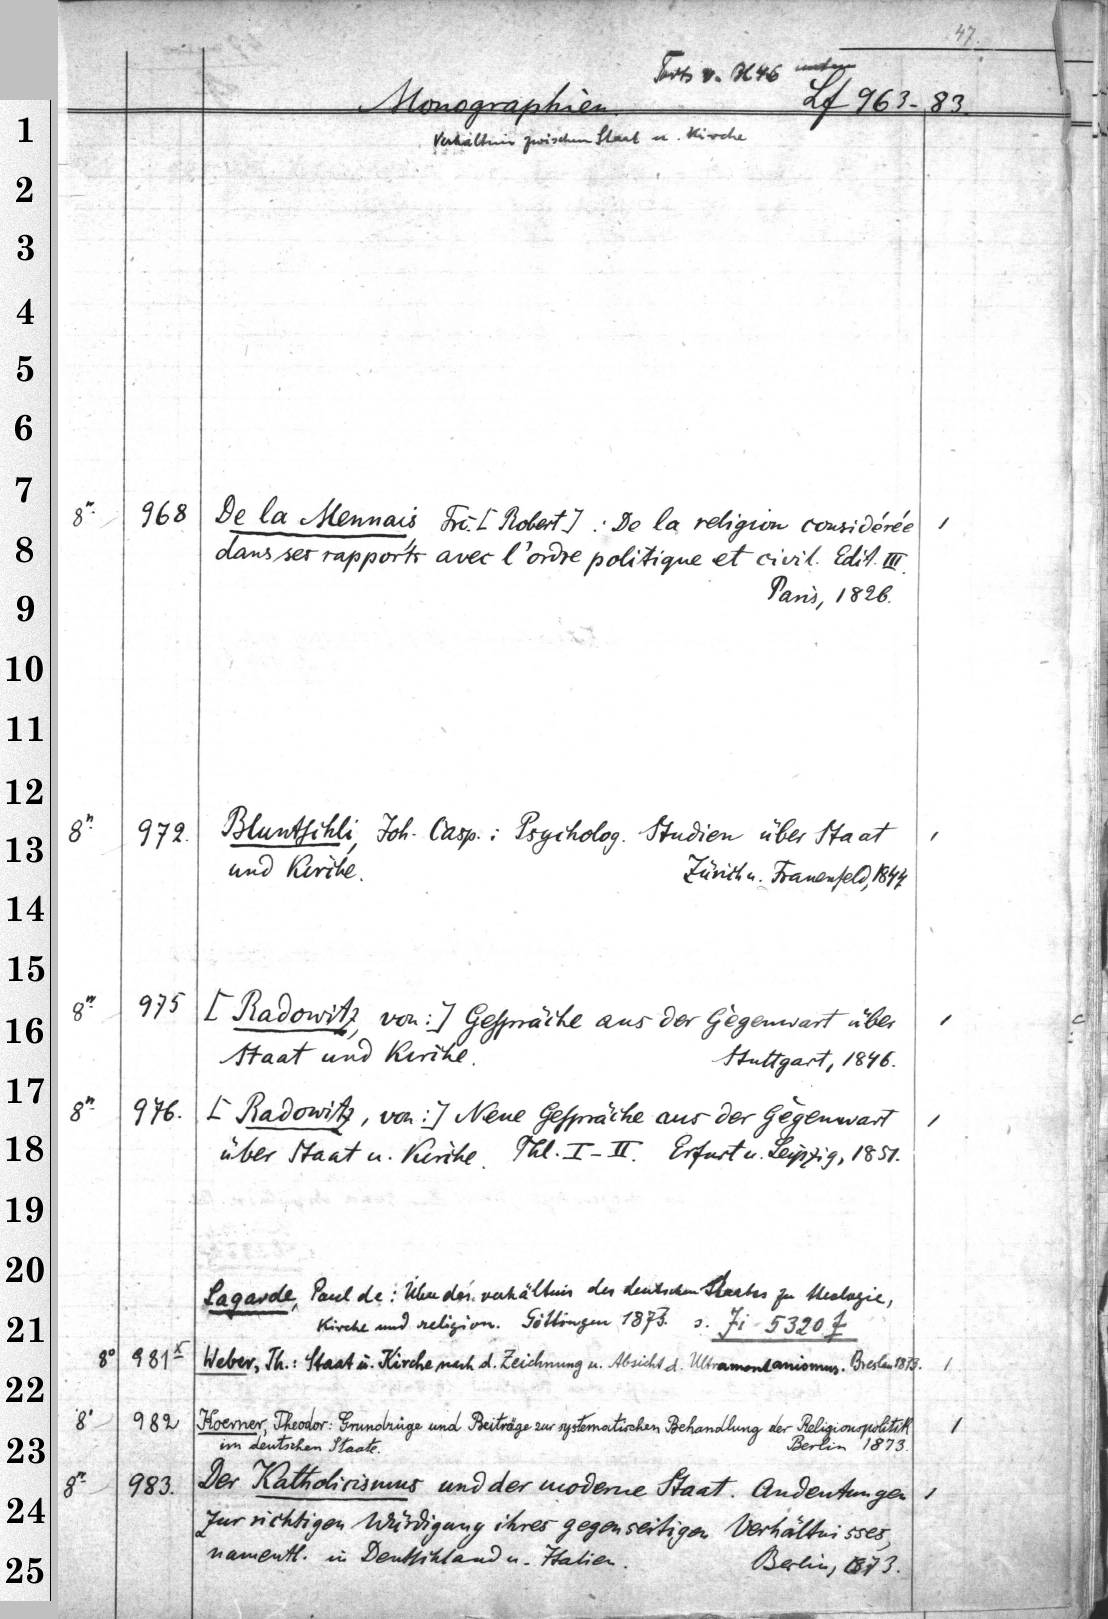 47.
Forts v. Bl 46 unten
Monographien. Lf 963-83.
Verhältnis zwischen Staat u. Kirche
1
2
3
4
5
6
7
8
9
10
11
12
13
14
15
16
17
18
19
20
21
22
23
24
25
8° 968 De la Mennais Frç. [Robert] : De la religion considérée 1
dans ses rapports avec l'ordre politique et civil. Edit. III.
Paris, 1826.
8° 972. Bluntschli, Joh. Casp.: Psycholog. Studien über Staat 1
und Kirche. Zürich u. Frauenfeld, 1844
8° 975 [Radowitz, von:] Gespräche aus der Gegenwart über 1
Staat und Kirche. Stuttgart, 1846.
8° 976. [Radowitz, von:] Neue Gespräche aus der Gegenwart 1
über Staat u. Kirche. Thl. I-II. Erfurt u. Leipzig, 1851.
Lagarde, Paul de: Über das verhältnis des deutschen Staates zu theologie,
Kirche und religion. Göttingen 1873. s. Ji 5320 f
8° 981x Weber, Th.: Staat u. Kirche nach d. Zeichnung u. Absicht d. Ultramontanismus. Breslau 1873. 1
8° 982 Koerner, Theodor: Grundzüge und Beiträge zur systematischen Behandlung der Religionspolitik 1
im deutschen Staate. Berlin 1873.
8° 983. Der Katholicismus und der moderne Staat. Andeutungen 1
zur richtigen Würdigung ihres gegenseitigen Verhältnisses,
namentl. in Deutschland u. Italien. Berlin, 1873.